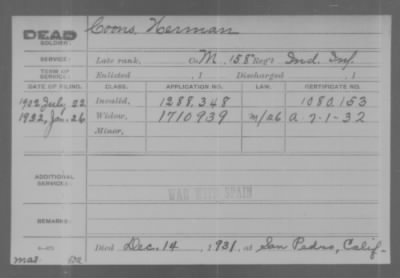 DEAD Coons, Herman
SOLDIER:
SERVICE: Late rank, Co. M, 158 Reg't Ind. Inf.
TERM OF SERVICE: Enlisted , 1 Discharged , 1
DATE OF FILING. CLASS. APPLICATION NO. LAW. CERTIFICATE NO.
1902 July 22 Invalid, 1288,348 1080,153
1932, Jan. 26 Widow, 1710939 m/26 a-7-1-32
Minor,
ADDITIONAL SERVICES:
WAR WITH SPAIN
REMARKS:
Died Dec. 14, 1931, at San Pedro, Calif.